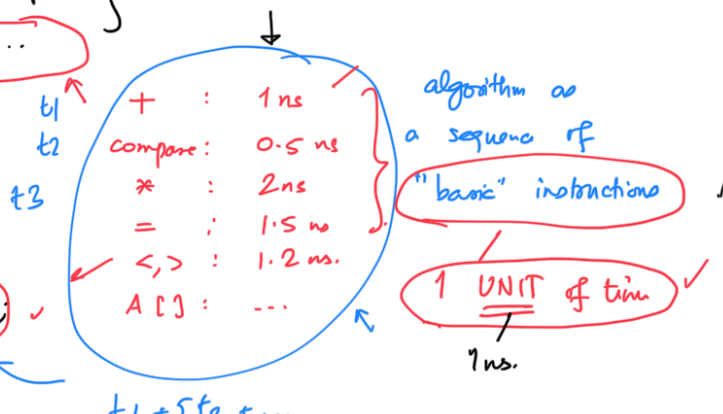 ..
t1 + : 1 ns
t2 compare : 0.5 ns
t3 * : 2ns
= : 1.5 ns
<, > : 1.2 ns.
A [ ] : ...
algorithm as
a sequence of
"basic" instructions
1 UNIT of time
1ns.
t1 + 5t2 +